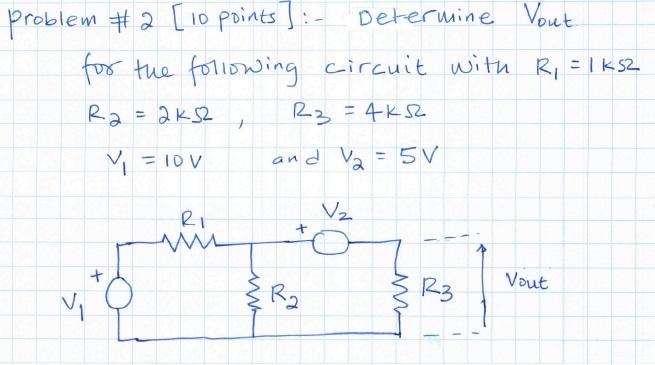 Problem # 2 [10 points] :- Determine Vout
for the following circuit with R1 = 1kΩ
R2 = 2kΩ , R3 = 4kΩ
V1 = 10V and V2 = 5V
V2
R1 +
+
V1 R2 R3 Vout